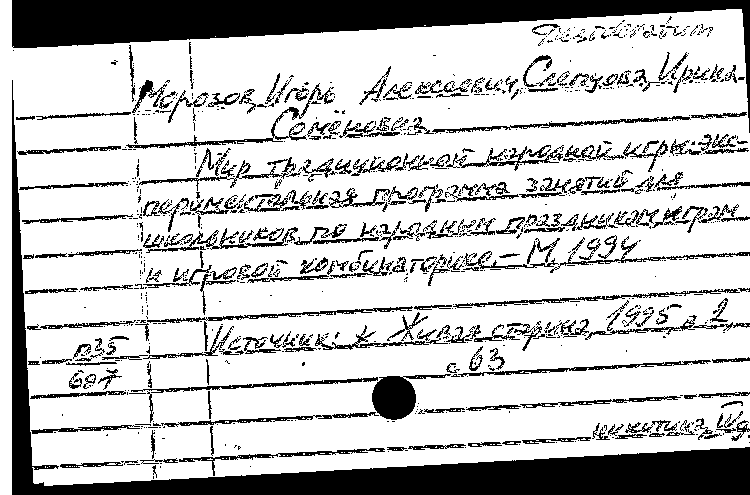 Desideratum
Морозов, Игорь Алексеевич, Слепцова, Ирина
Семёновна
Мир традиционной народной игры: экс-
периментальная программа занятий для
школьников по народным праздникам, играм
и игровой комбинаторике. – М, 1994
Источник: ж Живая старина, 1995, n 2,
с 63
п35
687
никитина,